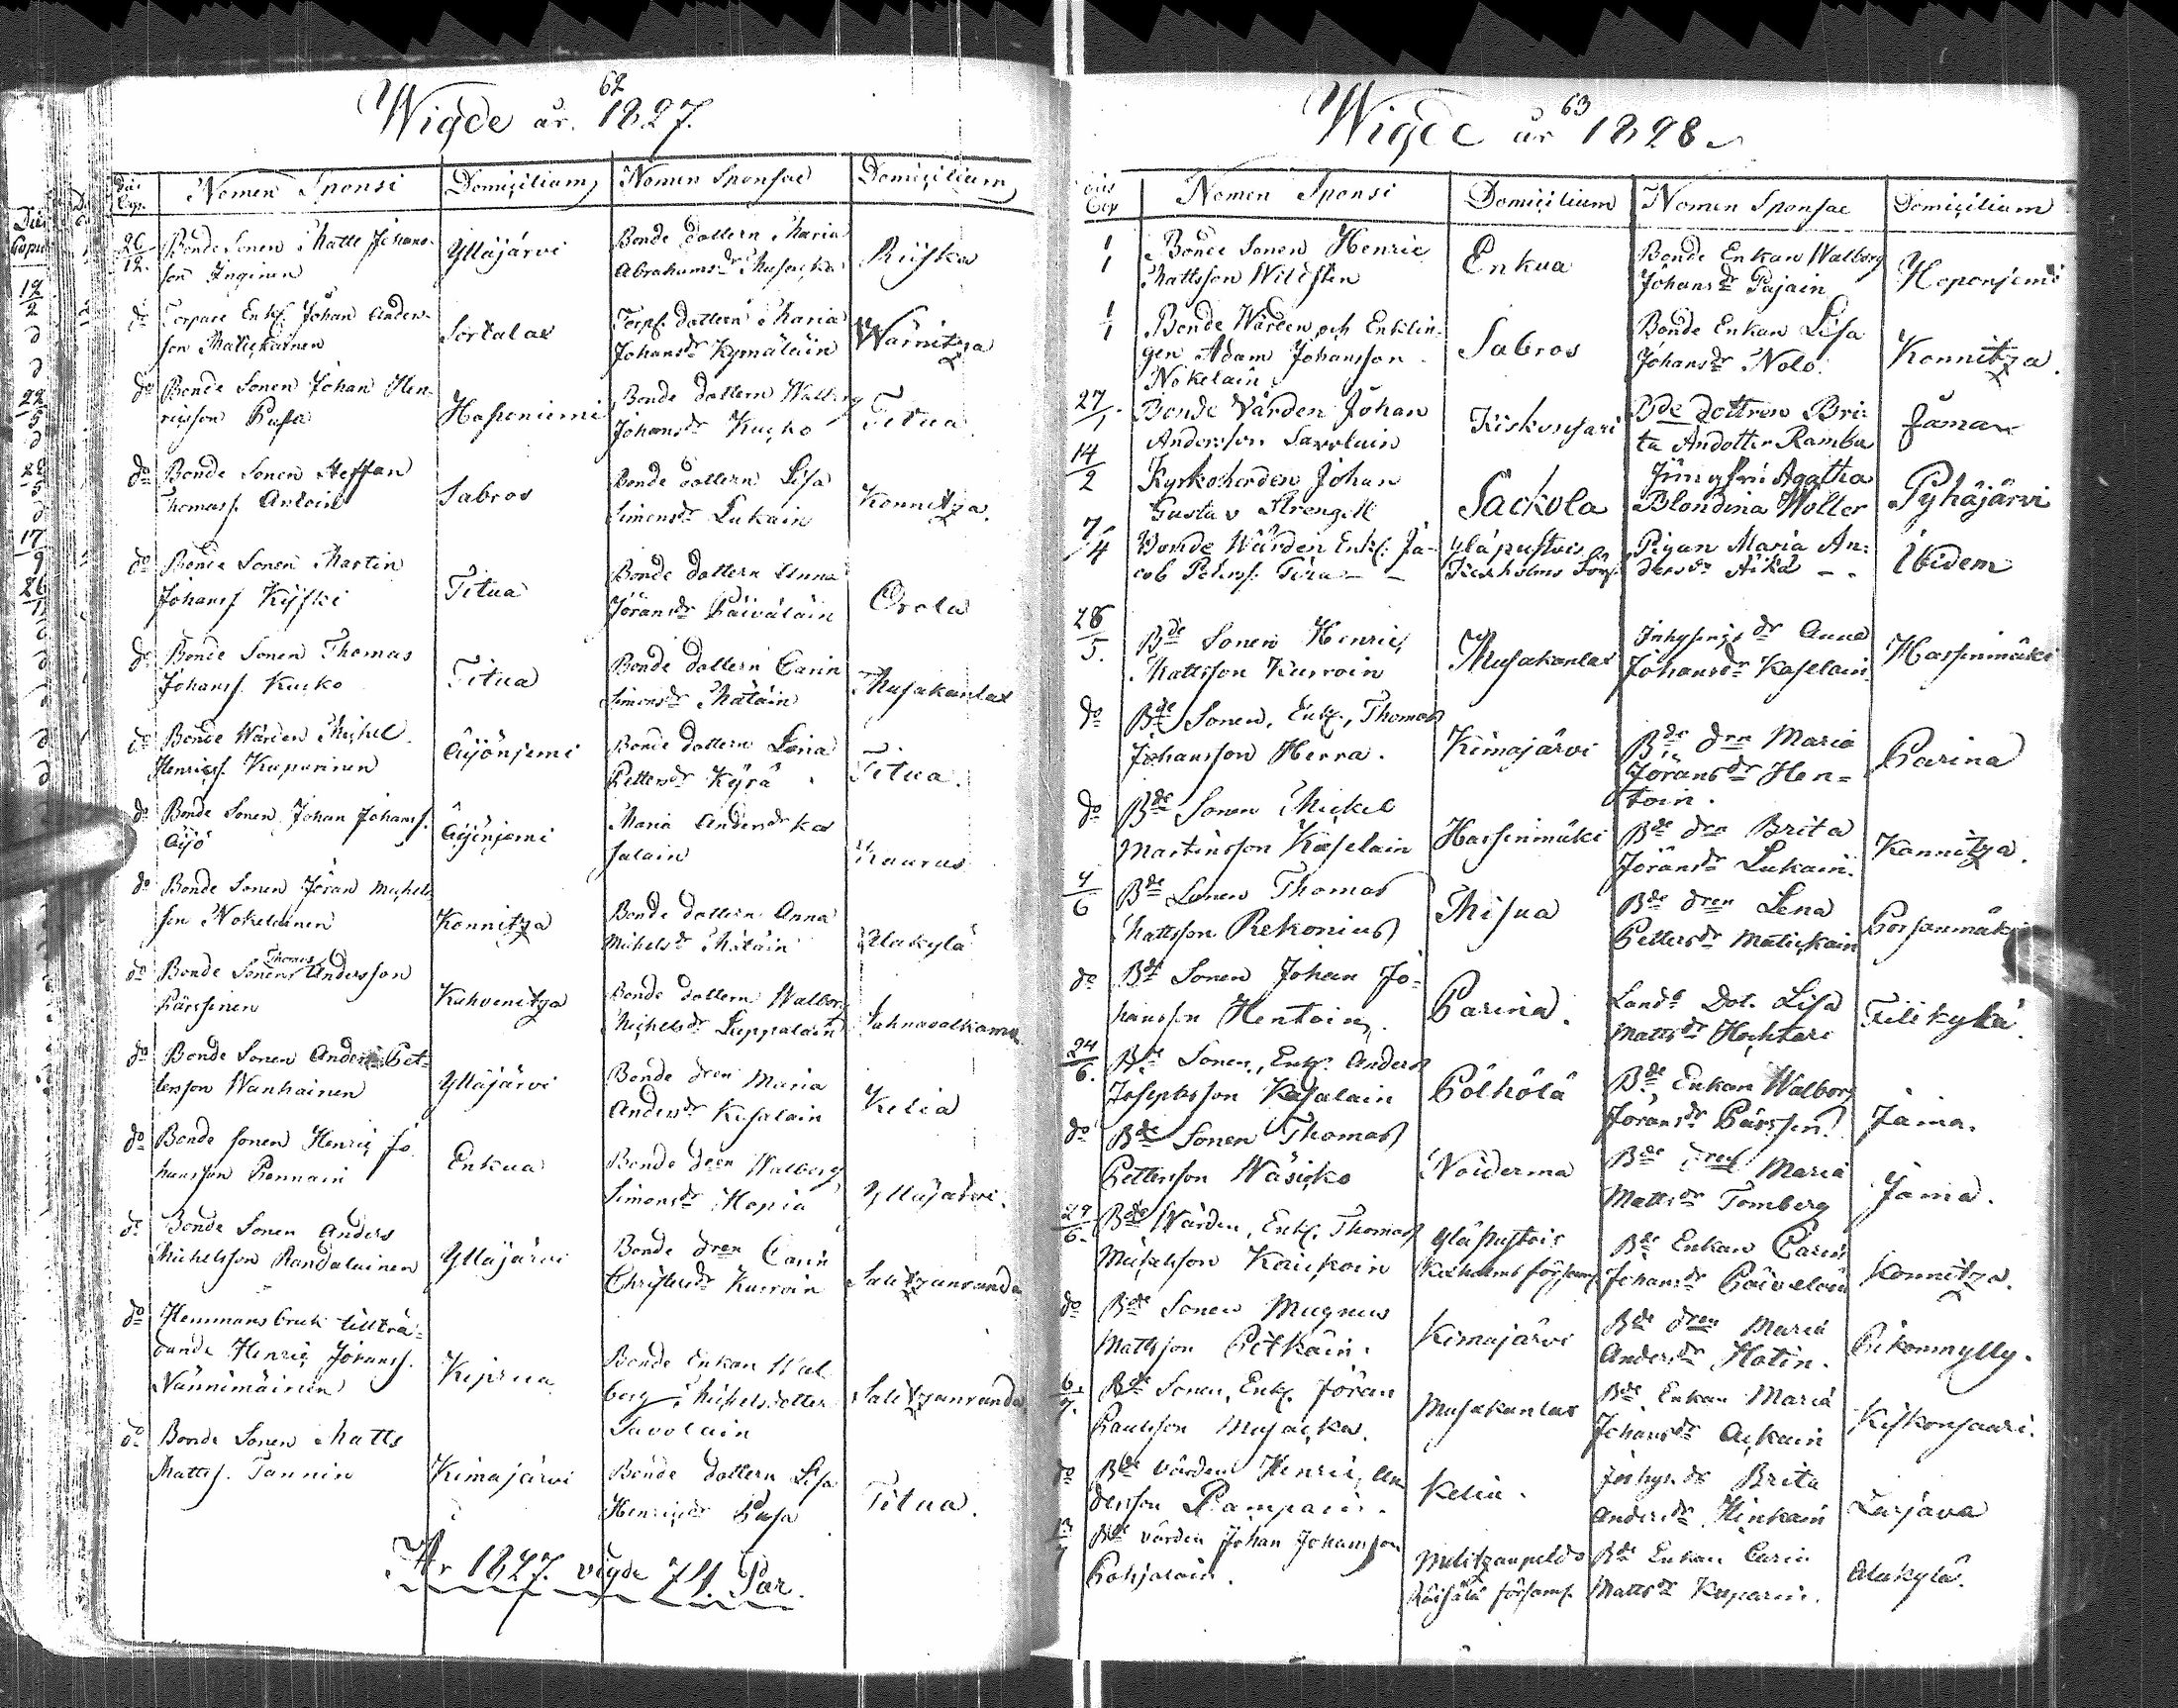 62
Wigde år. 1827.
Dies Cop.
Nomen Sponsi
Domicilium
Nomen Sponsae
Domicilium
26/12. Bonde Sonen Matts Johans-
son Inginen
Ylläjärvi
Bonde dottern Maria
Abrahamsdr Musacka
Riiska
do Torpare Enkl. Johan Anders-
son Matickainen
Sortalax
Torp. dottern Maria
Johansdr Kymäläin
Wärnitza
do Bonde Sonen Johan Hen-
ricsson Pusa
Haponiemi
Bonde dottern Walborg
Johansdr Kucko
Titua
do Bonde Sonen Steffan
Thomass. Antoin
Sabros
Bonde dottern Lisa
Simonsdr Lukain
Konnitza.
do Bonde Sonen Martin
Johanss Kiiski
Titua
Bonde dottern Anna
Jöransdr Päiväläin
Orola
do Bonde Sonen Thomas
Johanss. Kucko
Titua
Bonde dottern Carin
Simonsdr Mätäin
Musakanlax
do Bonde Wärden Michel
Henricss. Kuparinen
Äijönjemi
Bonde dottern Lena
Pettersdr Kyrä
Titua.
do Bonde Sonen Johan Johanss.
Äijö
Äijönjemi
Maria Andersdr Ka
salain
Kaurus
do Bonde Sonen Jöran Michels
son Nokelainen
Konnitza
Bonde dottern Anna
Michelsdr Mätäin
Alakylä
do Bonde Sonen Thomas Andersson
Pärssinen
Kahvenitza
Bonde dottern Walborg
Michelsdr Luppalain
Lahnavalkama
do Bonde Sonen Anders Pet-
tersson Wanhainen
Ylläjärvi
Bonde dren Maria
Andersdr Kasalain
Kelia
do Bonde sonen Henric Jo
hansson Pennain
Enkua
Bonde dren Walborg
Simonsdr Hopia
Ylläjärvi.
do Bonde Sonen Anders
Michelsson Randalainen
Ylläjärvi
Bonde dren Carin
Christersdr Kurvoin
Salitzanranda
do Hemmans bruk tillträ-
dande Henric Jöranss.
Nännimäinen
Kiprua
Bonde Enkan Wal
borg Michelsdotter
Savolain
Salitzanranda
do Bonde Sonen Matts
Mattss. Tannin
Kimajärvi
Bonde dottern Lisa
Henricsdr Pusa
Titua.
År 1827. vigde 74. Par.
63
Wigde år 1828.
Dies Cop
Nomen Sponsi
Domicilium
Nomen Sponsae
Domicilium
1/1 Bonde Sonen Henric
Mattsson Willsken
Enkua
Bonde Enkan Walborg
Johansdr Pajain
Haponjemi
1/1 Bonde Wärden och Enklin-
gen Adam Johansson
Nokelain
Sabros
Bonde Enkan Lisa
Johansdr Nolo.
Konnitza.
27/1. Bonde Värden Johan
Andersson Savolain
Kiskonsari
Bde dottren Bri-
ta Andotter Ramba
Jama
14/2 Kyrkoherden Johan
Gustav Strengell
Sackola
Jungfru Agatha
Blondina Wolter
Pyhäjärvi
7/4 Bonde Wärden Enkl. Ja-
cob Peterss. Tira
Yläpustois
Kexholms Förs.
Pigan Maria An-
dersdr Äikä
Ibidem
26/5. Bde Sonen Henric
Mattsson Kurvoin
Musakanlax
Inhysings dr Anna
Johansdr Kaselain
Hassinmäki
do Bde Sonen, Enkl., Thomas
Johansson Herra.
Kimajärvi
Bde dren Maria
Jöransdr Hen-
toin.
Parina
do Bde Sonen Mickel
Martinsson Kaselain
Hassinmäki
Bde dra Brita
Jöransdr Lukain.
Konnitza.
4/6 Bde Sonen Thomas
Mattsson Rekonius
Misua
Bde dren Lena
Pettersdr Matickain
Porsanmäki
do Bde Sonen Johan Jo-
hansson Hentoin.
Parina.
Lands Dot. Lisa
Mattsdr Hochtari
Tiilikylä
24/6. Bde Sonen, Enkl. Anders
Josephsson Kasalain
Pölhölä
Bde Enkan Walborg
Jöransdr Pärssin.
Jama.
do Bde Sonen Thomas
Pettersson Wäsicko
Noiderma
Bde dren Maria
Mattsdr Tomberg
Jama.
29/6. Bde Wärden, Enkl. Thomas
Mickelsson Kaickoin
Yläpustois
Kexholms församl.
Bde Enkan Carin
Johansdr Päiveläin
Konnitza.
do Bde Sonen Magnus
Mattsson Pitkäin.
Kimajärvi
Bde dren Maria
Andersdr Hatin.
Pikonmylly.
6/7. Bde Sonen, Enkl. Jöran
Paulsson Musacka.
Musakanlax
Bde Enkan Maria
Johansdr Ackain
Kiskonsaari.
do Bde värden Henric An
dersson Pampain.
Kelia.
Inhys dr Brita
Andersdr Hinkain
Larjava
Bde värden Johan Johansson
Pohjalain.
Räisälä församl.
Bde Enkan Carin
Mattsdr Kuparin.
Alakylä.